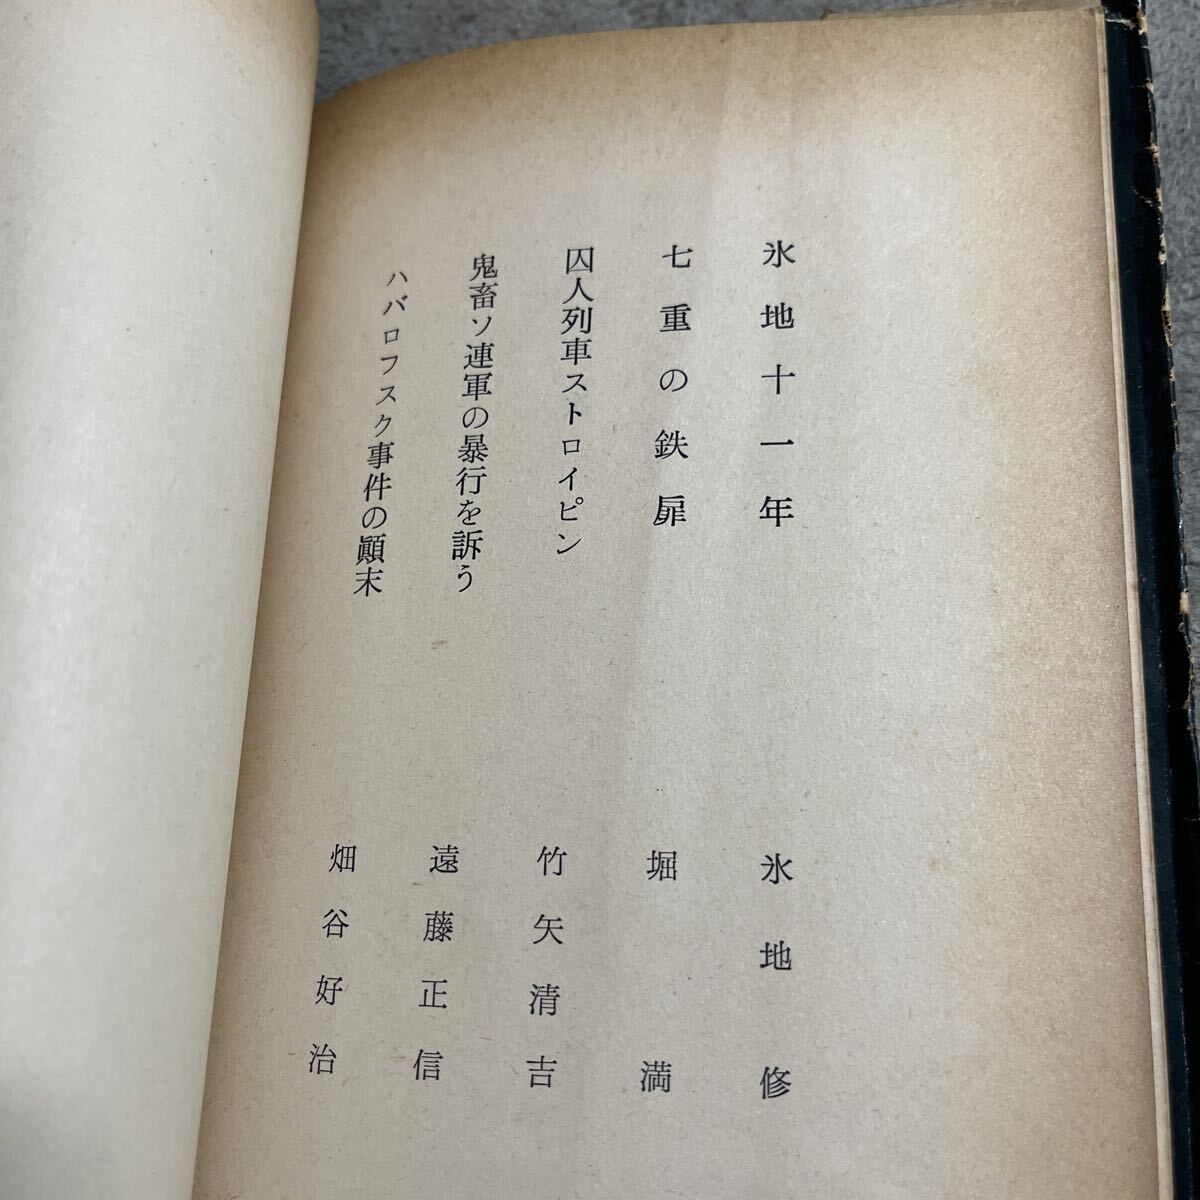 氷地十一年 氷地修
七重の鉄扉 堀満
囚人列車ストロイピン 竹矢清吉
鬼畜ソ連軍の暴行を訴う 遠藤正信
ハバロフスク事件の顚末 畑谷好治